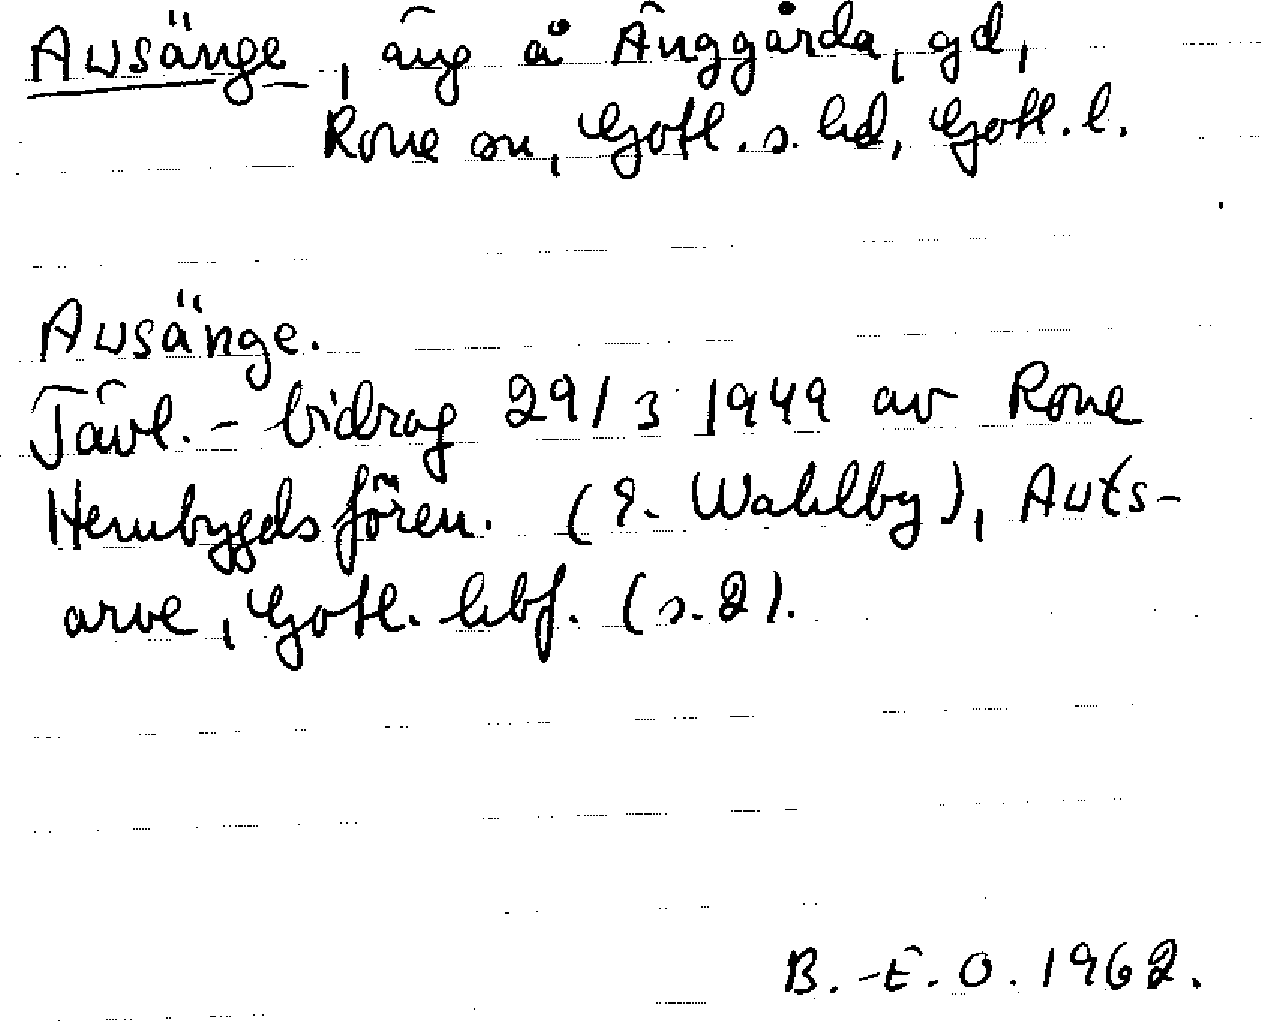 Ausänge, äng å Änggårda, gd,
Rone sn, Gotl. s. hd, Gotl. l.
Ausänge.
Tävl.-bidrag 29/3 1949 av Rone
Hembygdsfören. (E. Wahlby), Auts-
arve, Gotl. hbf. (s. 2).
B.-E. O. 1962.